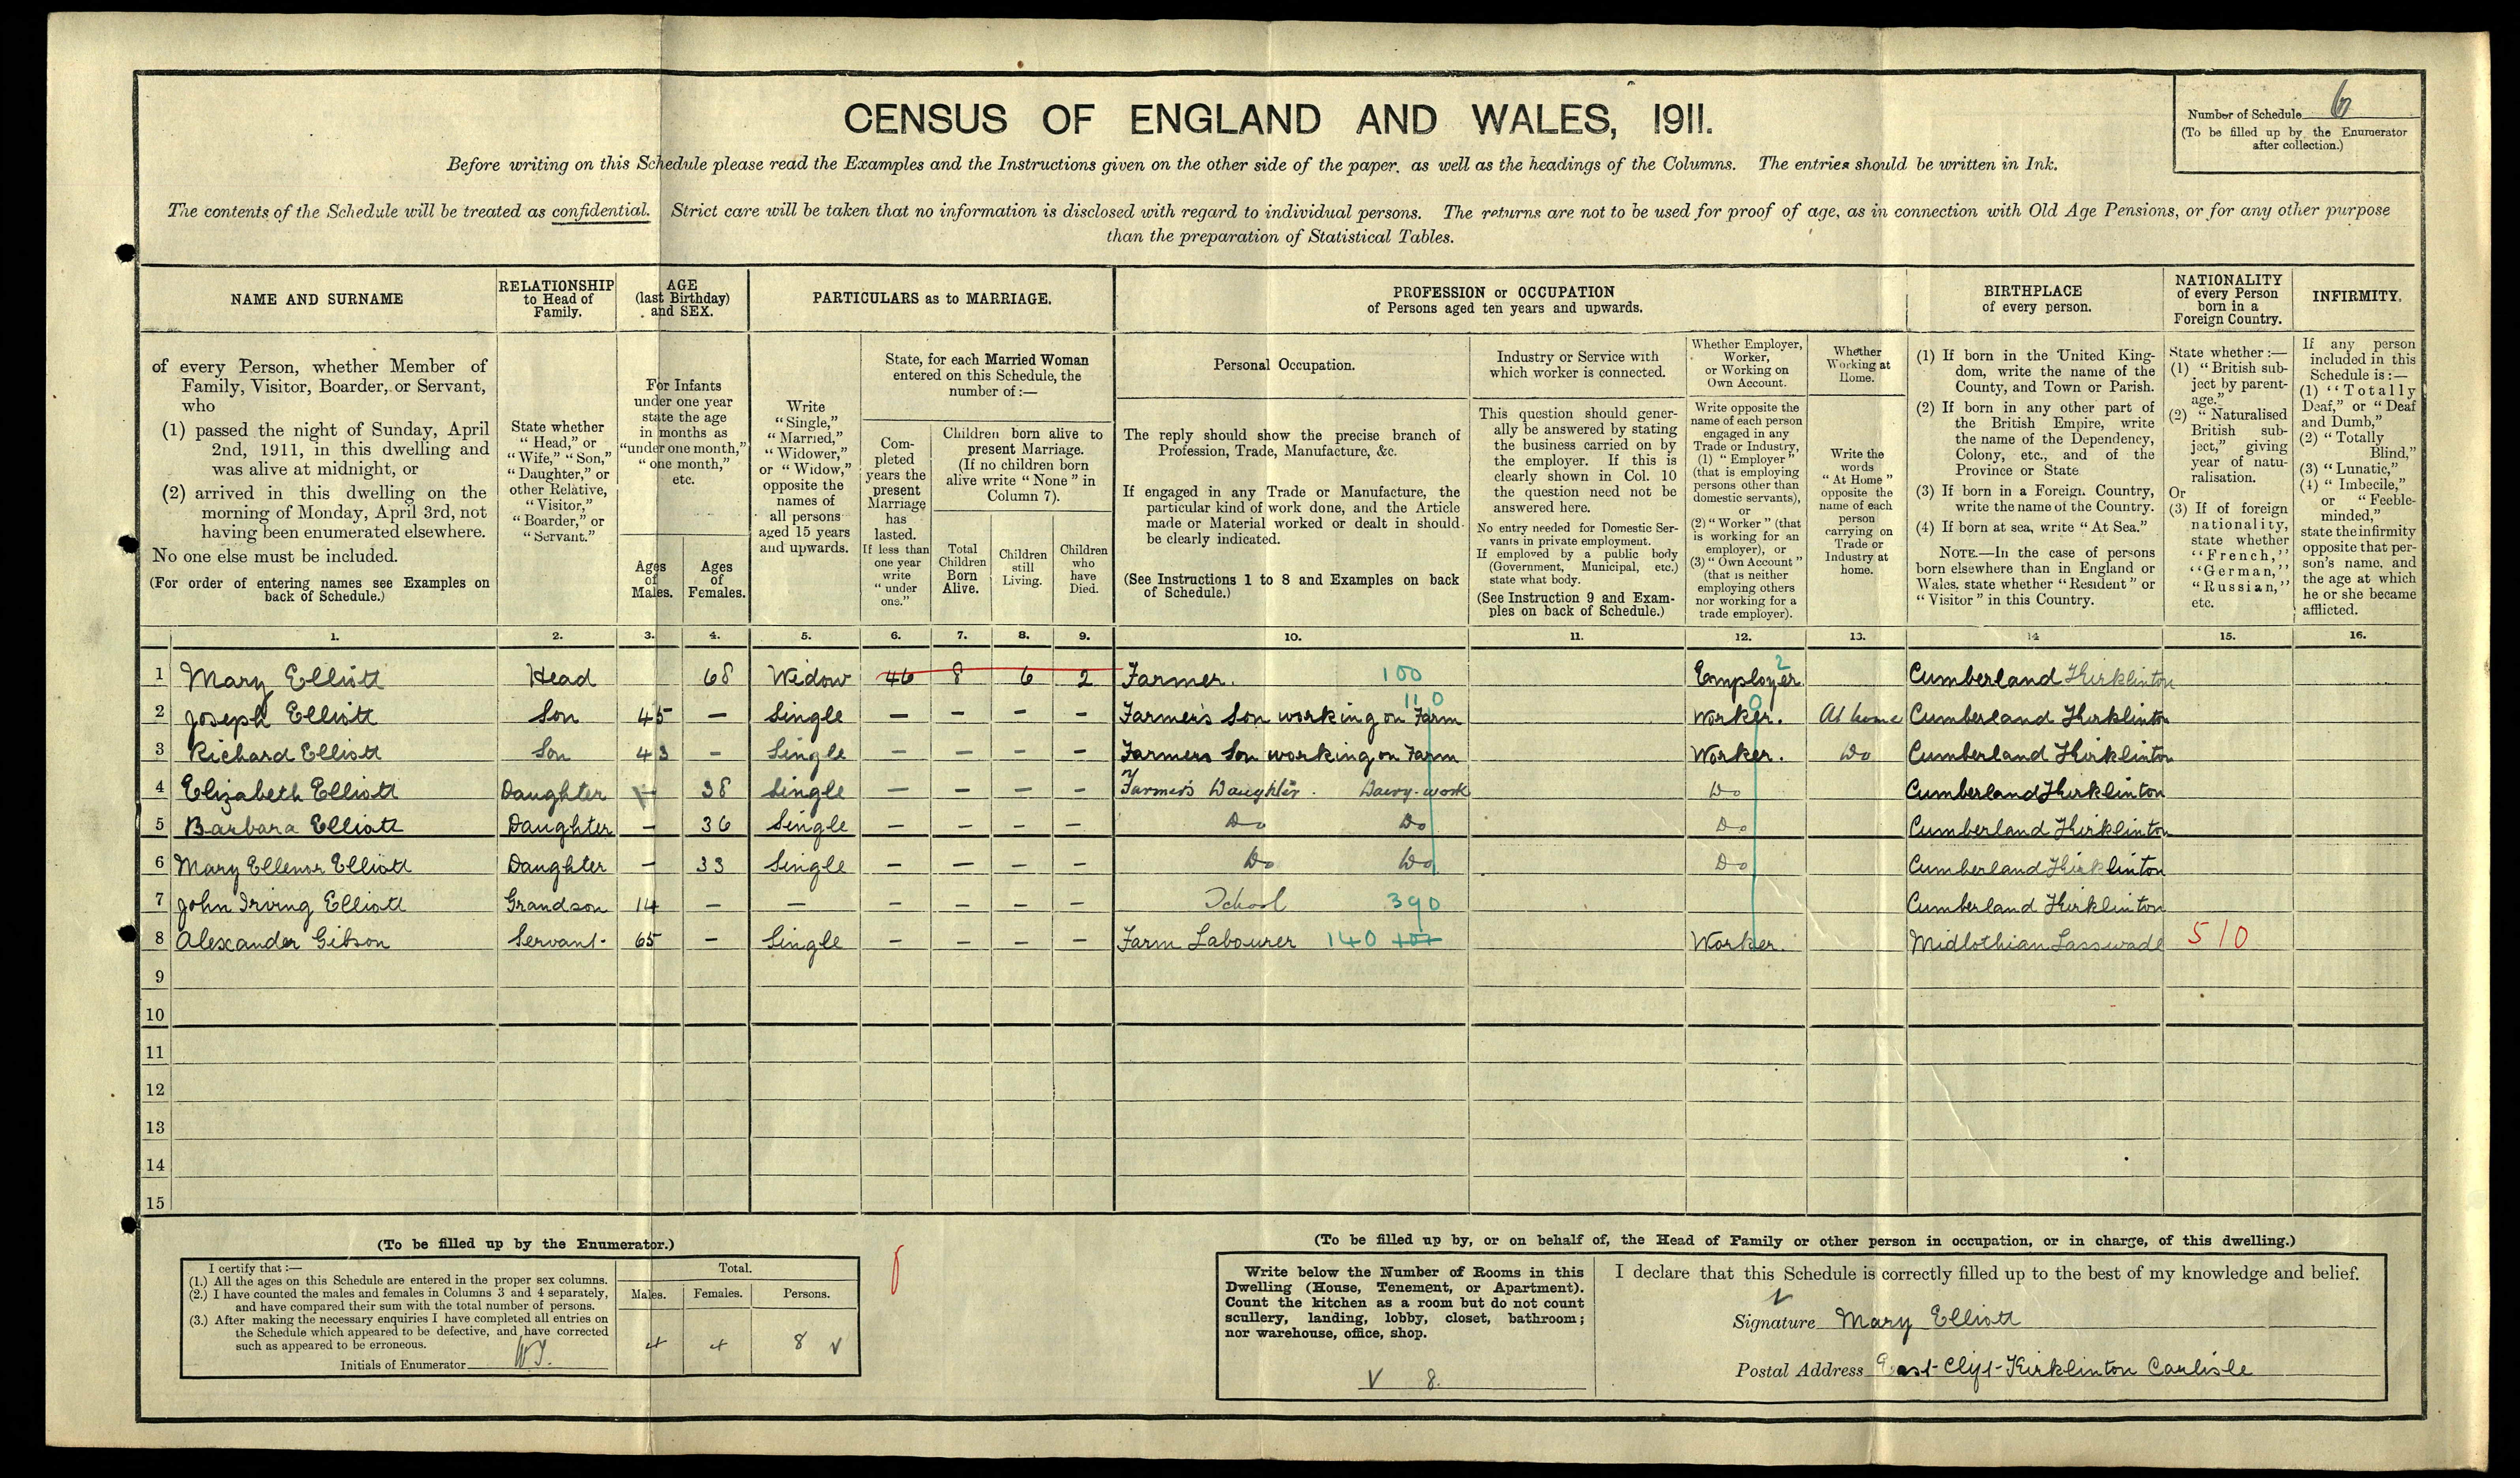 CENSUS OF ENGLAND AND WALES, 1911.
Number of Schedule 6
(To be filled up by the Enumerator
after collection.)
Before writing on this Schedule please read the Examples and the Instructions given on the other side of the paper, as well as the headings of the Columns. The entries should be written in Ink.
The contents of the Schedule will be treated as confidential. Strict care will be taken that no information is disclosed with regard to individual persons. The returns are not to be used for proof of age, as in connection with Old Age Pensions, or for any other purpose
than the preparation of Statistical Tables.
NAME AND SURNAME
of every Person, whether Member of
Family, Visitor, Boarder, or Servant,
who
(1) passed the night of Sunday, April
2nd, 1911, in this dwelling and
was alive at midnight, or
(2) arrived in this dwelling on the
morning of Monday, April 3rd, not
having been enumerated elsewhere.
No one else must be included.
(For order of entering names see Examples on
back of Schedule.)
RELATIONSHIP
to Head of
Family.
State whether
"Head," or
"Wife," "Son,"
"Daughter," or
other Relative,
"Visitor,"
"Boarder," or
"Servant."
AGE
(last Birthday)
and SEX.
For Infants
under one year
state the age
in months as
"under one month,"
"one month,"
etc.
Ages
of
Males.
Ages
of
Females.
PARTICULARS as to MARRIAGE.
Write
"Single,"
"Married,"
"Widower,"
or "Widow,"
opposite the
names of
all persons
aged 15 years
and upwards.
State, for each Married Woman
entered on this Schedule, the
number of :—
Com-
pleted
years the
present
Marriage
has
lasted.
If less than
one year
write
"under
one."
Children born alive to
present Marriage.
(If no children born
alive write "None" in
Column 7).
Total
Children
Born
Alive.
Children
still
Living.
Children
who
have
Died.
PROFESSION or OCCUPATION
of Persons aged ten years and upwards.
Personal Occupation.
The reply should show the precise branch of
Profession, Trade, Manufacture, &c.
If engaged in any Trade or Manufacture, the
particular kind of work done, and the Article
made or Material worked or dealt in should
be clearly indicated.
(See Instructions 1 to 8 and Examples on back
of Schedule.)
Industry or Service with
which worker is connected.
This question should gener-
ally be answered by stating
the business carried on by
the employer. If this is
clearly shown in Col. 10
the question need not be
answered here.
No entry needed for Domestic Ser-
vants in private employment.
If employed by a public body
(Government, Municipal, etc.)
state what body.
(See Instruction 9 and Exam-
ples on back of Schedule.)
Whether Employer,
Worker,
or Working on
Own Account.
Write opposite the
name of each person
engaged in any
Trade or Industry,
(1) "Employer"
(that is employing
persons other than
domestic servants),
or
(2) "Worker" (that
is working for an
employer), or
(3) "Own Account"
(that is neither
employing others
nor working for a
trade employer).
Whether
Working at
Home.
Write the
words
"At Home"
opposite the
name of each
person
carrying on
Trade or
Industry at
home.
BIRTHPLACE
of every person.
(1) If born in the United King-
dom, write the name of the
County, and Town or Parish.
(2) If born in any other part of
the British Empire, write
the name of the Dependency,
Colony, etc., and of the
Province or State
(3) If born in a Foreign Country,
write the name of the Country.
(4) If born at sea, write "At Sea."
NOTE.—In the case of persons
born elsewhere than in England or
Wales, state whether "Resident" or
"Visitor" in this Country.
NATIONALITY
of every Person
born in a
Foreign Country.
State whether :—
(1) "British sub-
ject by parent-
age."
(2) "Naturalised
British sub-
ject," giving
year of natu-
ralisation.
Or
(3) If of foreign
nationality,
state whether
"French,"
"German,"
"Russian,"
etc.
INFIRMITY.
If any person
included in this
Schedule is :—
(1) "Totally
Deaf," or "Deaf
and Dumb,"
(2) "Totally
Blind,"
(3) "Lunatic,"
(4) "Imbecile,"
or "Feeble-
minded,"
state the infirmity
opposite that per-
son's name, and
the age at which
he or she became
afflicted.
1. 2. 3. 4. 5. 6. 7. 8. 9. 10. 11. 12. 13. 14 15. 16.
1 Mary Elliott Head 68 Widow 46 8 6 2 Farmer. 100 Employer. 2 Cumberland Kirklinton
2 Joseph Elliott Son 45 — Single — — — — Farmer's Son working on Farm 110 Worker. 0 At home Cumberland Kirklinton
3 Richard Elliott Son 43 — Single — — — — Farmers Son working on Farm Worker. Do Cumberland Kirklinton
4 Elizabeth Elliott Daughter — 38 Single — — — — Farmer's Daughter. Dairy-work Do Cumberland Kirklinton
5 Barbara Elliott Daughter — 36 Single — — — — Do Do Do Cumberland Kirklinton
6 Mary Ellenor Elliott Daughter — 33 Single — — — — Do Do Do Cumberland Kirklinton
7 John Irving Elliott Grandson 14 — — — — — — School 390 Cumberland Kirklinton
8 Alexander Gibson Servant. 65 — Single — — — — Farm Labourer 140 Worker. Midlothian Lasswade 510
9
10
11
12
13
14
15
(To be filled up by the Enumerator.)
I certify that :—
(1.) All the ages on this Schedule are entered in the proper sex columns.
(2.) I have counted the males and females in Columns 3 and 4 separately,
and have compared their sum with the total number of persons.
(3.) After making the necessary enquiries I have completed all entries on
the Schedule which appeared to be defective, and have corrected
such as appeared to be erroneous.
Initials of Enumerator
Total.
Males. Females. Persons.
4 4 8
(To be filled up by, or on behalf of, the Head of Family or other person in occupation, or in charge, of this dwelling.)
Write below the Number of Rooms in this
Dwelling (House, Tenement, or Apartment).
Count the kitchen as a room but do not count
scullery, landing, lobby, closet, bathroom;
nor warehouse, office, shop.
8.
I declare that this Schedule is correctly filled up to the best of my knowledge and belief.
Signature Mary Elliott
Postal Address East Clift Kirklinton Carlisle